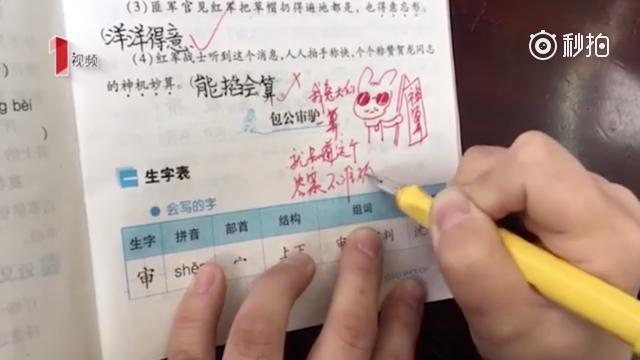 (3)匪军官见红军把草帽扔得遍地都是,也得意忘形。
(洋洋得意)
(4)红军战士听到这个消息,人人拍手称快,个个称赞贺龙同志
的神机妙算。(能掐会算)
包公审驴
我兔大仙
算
就知道这个
答案不准确
神算
生字表
会写的字
生字 拼音 部首 结构 组词
审 shěn 宀 上下 审 判
bèi
1视频
秒拍